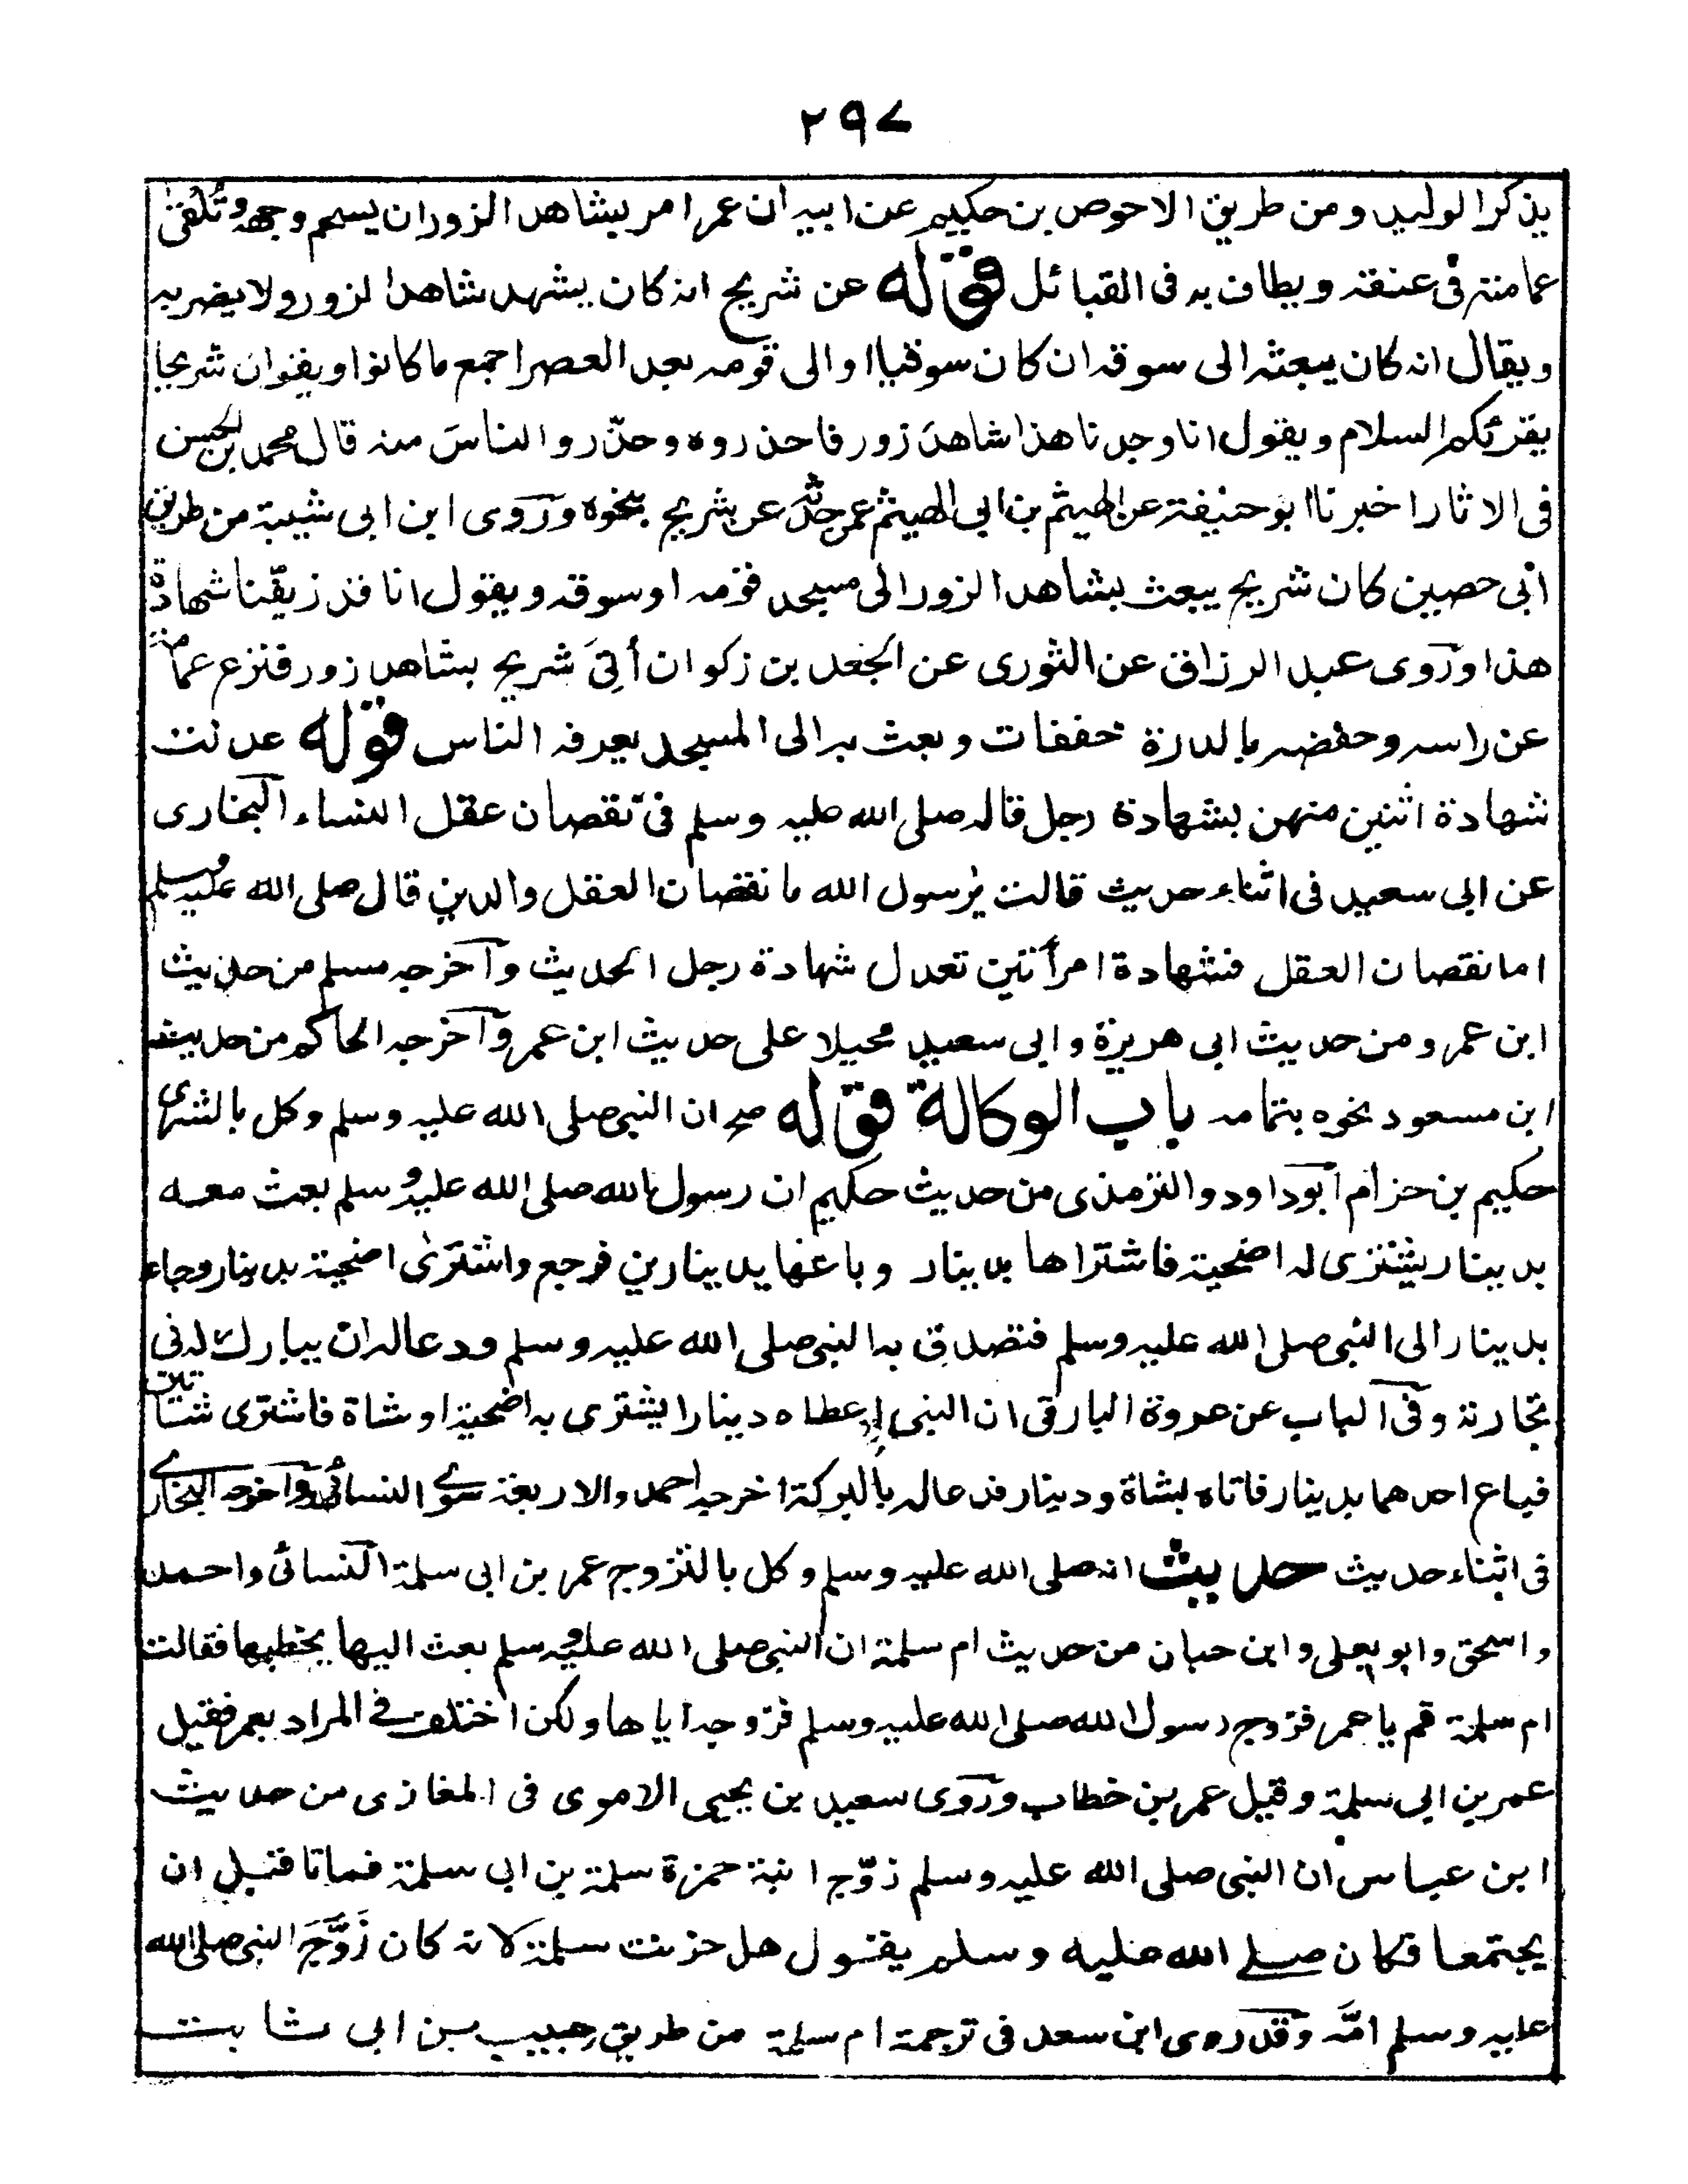 ۲۹۷
يذكر الوليد ومن طريق الاحوص بن حكيم عن ابيه ان عمر امر بشاهد الزور ان يسحم وجهه وتُلقىٰ
عمامته فى عنقه ويطاف به فى القبائل قوله عن شريح انه كان يشهد شاهد الزور ولا يضربه
ويقال انه كان يبعثه الى سوقه ان كان سوقيا او الى قومه بعد العصر اجمع ما كانوا ويقوا ان شريحا
يقرئكم السلام ويقول انا وجدنا هذا شاهدَ زور فاحذروه وحذّروا الناسَ منه قال محمد بن الحسن
فى الاثار اخبرنا ابو حنيفة عن الهيثم بن ابى الهيثم عمن حدثه عن شريح بنحوه وروى ابن ابى شيبة من طريق
ابى حصين كان شريح يبعث بشاهد الزور الى مسجد قومه او سوقه ويقول انا قد زيّفنا شهادة
هذا وروى عبد الرزاق عن الثورى عن الجعد بن زكوان أُتِىَ شريح بشاهد زور فنزع عمامته
عن راسه وخفضه بالدرة خفقات وبعث به الى المسجد يعرفه الناس قوله عدلت
شهادة اثنين منهن بشهادة رجل قاله صلى الله عليه وسلم فى نقصان عقل النساء البخارى
عن ابى سعيد فى اثناء حديث قالت يٰرسول الله ما نقصان العقل والدين قال صلى الله عليه وسلم
اما نقصان العقل فشهادة امرأتين تعدل شهادة رجل الحديث واخرجه مسلم من حديث
ابن عمر ومن حديث ابى هريرة وابى سعيد محيلا على حديث ابن عمر واخرجه الحاكم من حديث
ابن مسعود نحوه بتمامه باب الوكالة قوله صح ان النبى صلى الله عليه وسلم وكل بالشرى
حكيم بن حزام ابو داود والترمذى من حديث حكيم ان رسول الله صلى الله عليه وسلم بعث معه
بدينار يشترى له اضحية فاشتراها بدينار وباعها بدينارين فرجع واشترىٰ اضحية بدينار وجاء
بدينار الى النبى صلى الله عليه وسلم فتصدق به النبى صلى الله عليه وسلم ودعا له ان يبارك له فى
تجارته وفى الباب عن عروة البارقى ان النبى اعطاه دينارا يشترى به اضحية او شاة فاشترى شاتين
فباع احدهما بدينار فاتاه بشاة ودينار فدعا له بالبركة اخرجه احمد والاربعة سوى النسائى واخرجه البخارے
فى اثناء حديث حديث انه صلى الله عليه وسلم وكل بالتزوج عمر بن ابى سلمة النسائى واحمد
واسحق وابو يعلى وابن حبان من حديث ام سلمة ان النبى صلى الله عليه وسلم بعث اليها يخطبها فقالت
ام سلمة قم يا عمر فزوج رسول الله صلى الله عليه وسلم فزوجه اياها ولكن اختلف فے المراد بعمر فقيل
عمر بن ابى سلمة وقيل عمر بن خطاب وروى سعيد بن يحيى الاموى فى المغازى من حديث
ابن عباس ان النبى صلى الله عليه وسلم زوّج ابنة حمزة سلمة بن ابى سلمة فماتا قبل ان
يجتمعا فكان صلے الله عليه وسلم يقول هل حزنت سلمة لانه كان زَوَّجَ النبى صلى الله
عليه وسلم امَّه وقد روى ابن سعد فى ترجمة ام سلمة من طريق حبيب بن ابى ثابت